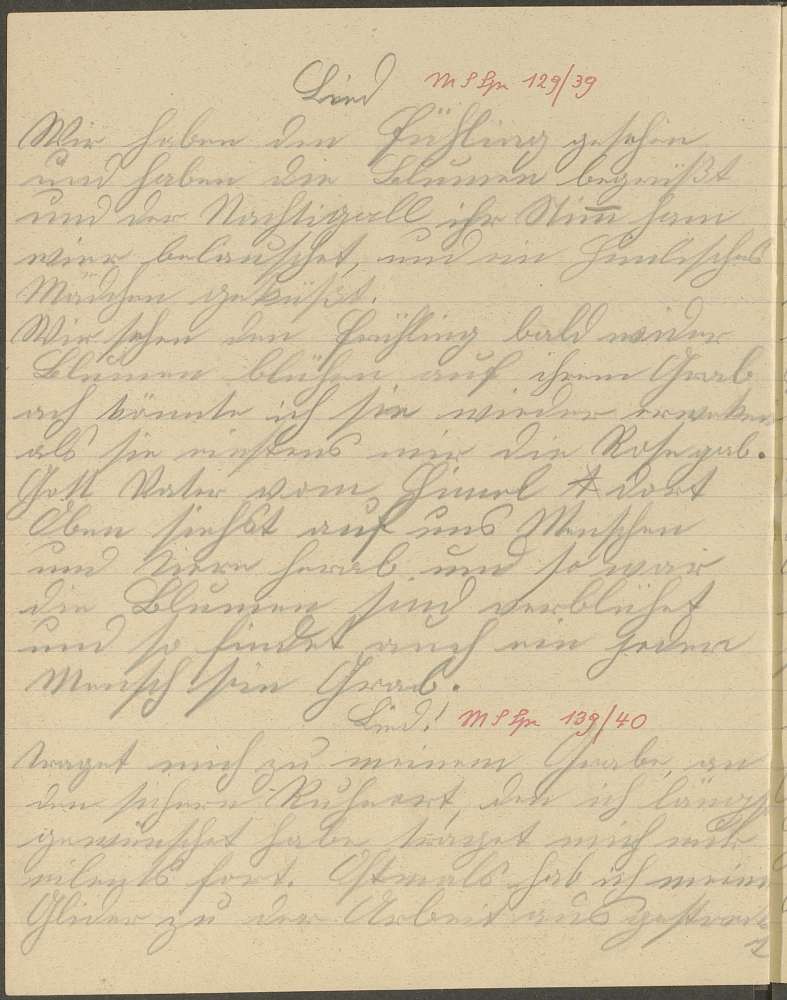 Lied MS Lpr 129/39
Wir haben den Frühling gesehen
und haben die Blumen begrüßt
und der Nachtigall ihr Stim̅ ham
wier belauschet, und ein Himlisches
Mädchen geküßt.
Wir sehen den Frühling bald wider
Blumen blühen auf ihrem Grab
ach könnte ich sie wieder erweken
als sie einstens mir die Rose gab.
Gott Vater vom Himel dort
Oben siehst auf uns Menschen
und Tiere herab und so war
die Blumen sind verblühet
und so findet auch ein jeder
Mensch sein Grab.
Lied! MS Lpr 139/40
Traget mich zu meinem Grabe, an
den sichern Ruheort, den ich längst
gewünschet habe, traget mich nur
eilents fort. Oftmals hab ich meine
Glider zu der Arbeit ausgestreck
t